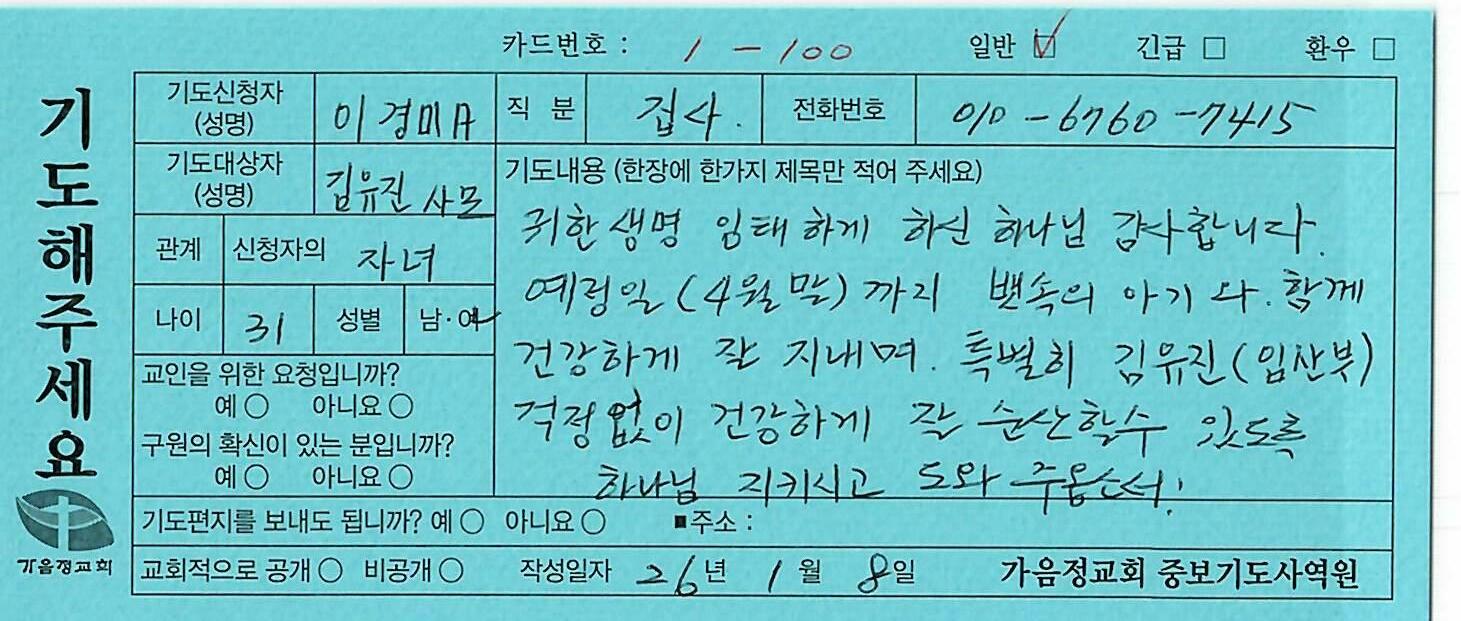 카드번호 : 1 - 100 일반 ☑ 긴급 □ 환우 □
기도해주세요
기도신청자 (성명) 이경미A 직 분 집사. 전화번호 010-6760-7415
기도대상자 (성명) 김유진 사모
관계 신청자의 자녀
나이 31 성별 남·여
교인을 위한 요청입니까?
예 ○ 아니요 ○
구원의 확신이 있는 분입니까?
예 ○ 아니요 ○
기도내용 (한장에 한가지 제목만 적어 주세요)
귀한생명 임태하게 하신 하나님 감사합니다.
예정일(4월말)까지 밴속의 아기와. 함께
건강하게 잘 지내며. 특별히 김유진(임산부)
걱정없이 건강하게 잘 순산할수 있도록
하나님 지키시고 도와 주옵소서!
기도편지를 보내도 됩니까? 예 ○ 아니요 ○ ■주소 :
교회적으로 공개 ○ 비공개 ○ 작성일자 26년 1월 8일 가음정교회 중보기도사역원
가음정교회